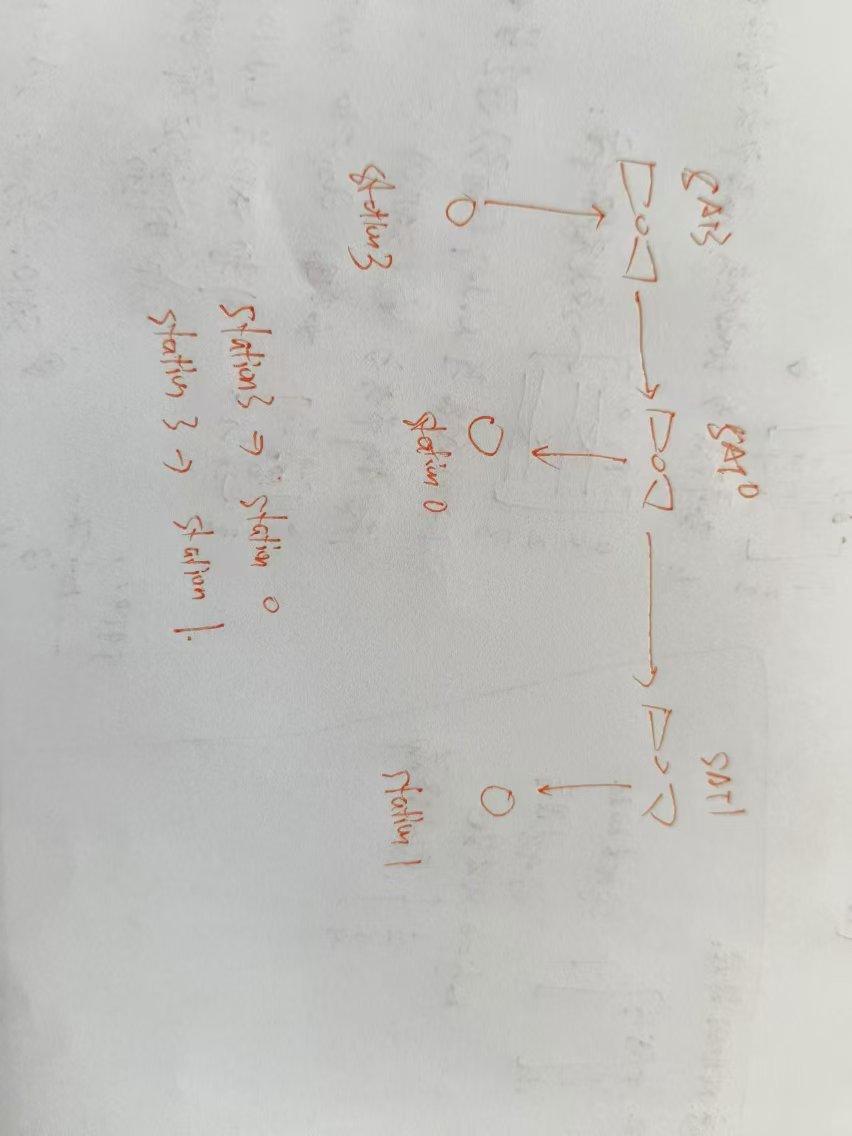 SAT3
SAT0
SAT1
station3
station 0
station 1
station3 → station 0
station 3 → station 1.